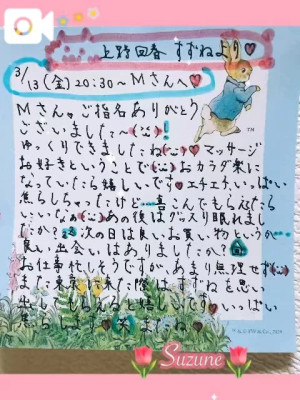 上野回春 すずねより♥
3/13(金)20:30~Mさんへ♥
Mさん。ご指名ありがとう
ございました~(¨)!
ゆっくりできましたね(¨)♥マッサージ
お好きということで(¨)おカラダ楽に
なっていたら嬉しいです♥エチエチいっぱい
焦らしちゃったけど…喜こんでもらえたら
いいなぁ(¨)あの後はグッスリ眠れまし
たか?次の日は良いお買い物というか…
良い出会いはありましたか?
お仕事忙しそうですが、あまり無理せず(¨)
また東京に来た際は すずねを思い
出してもらえると嬉しいです♥いっぱい
焦らします♥笑 またね♥
TM
Suzune